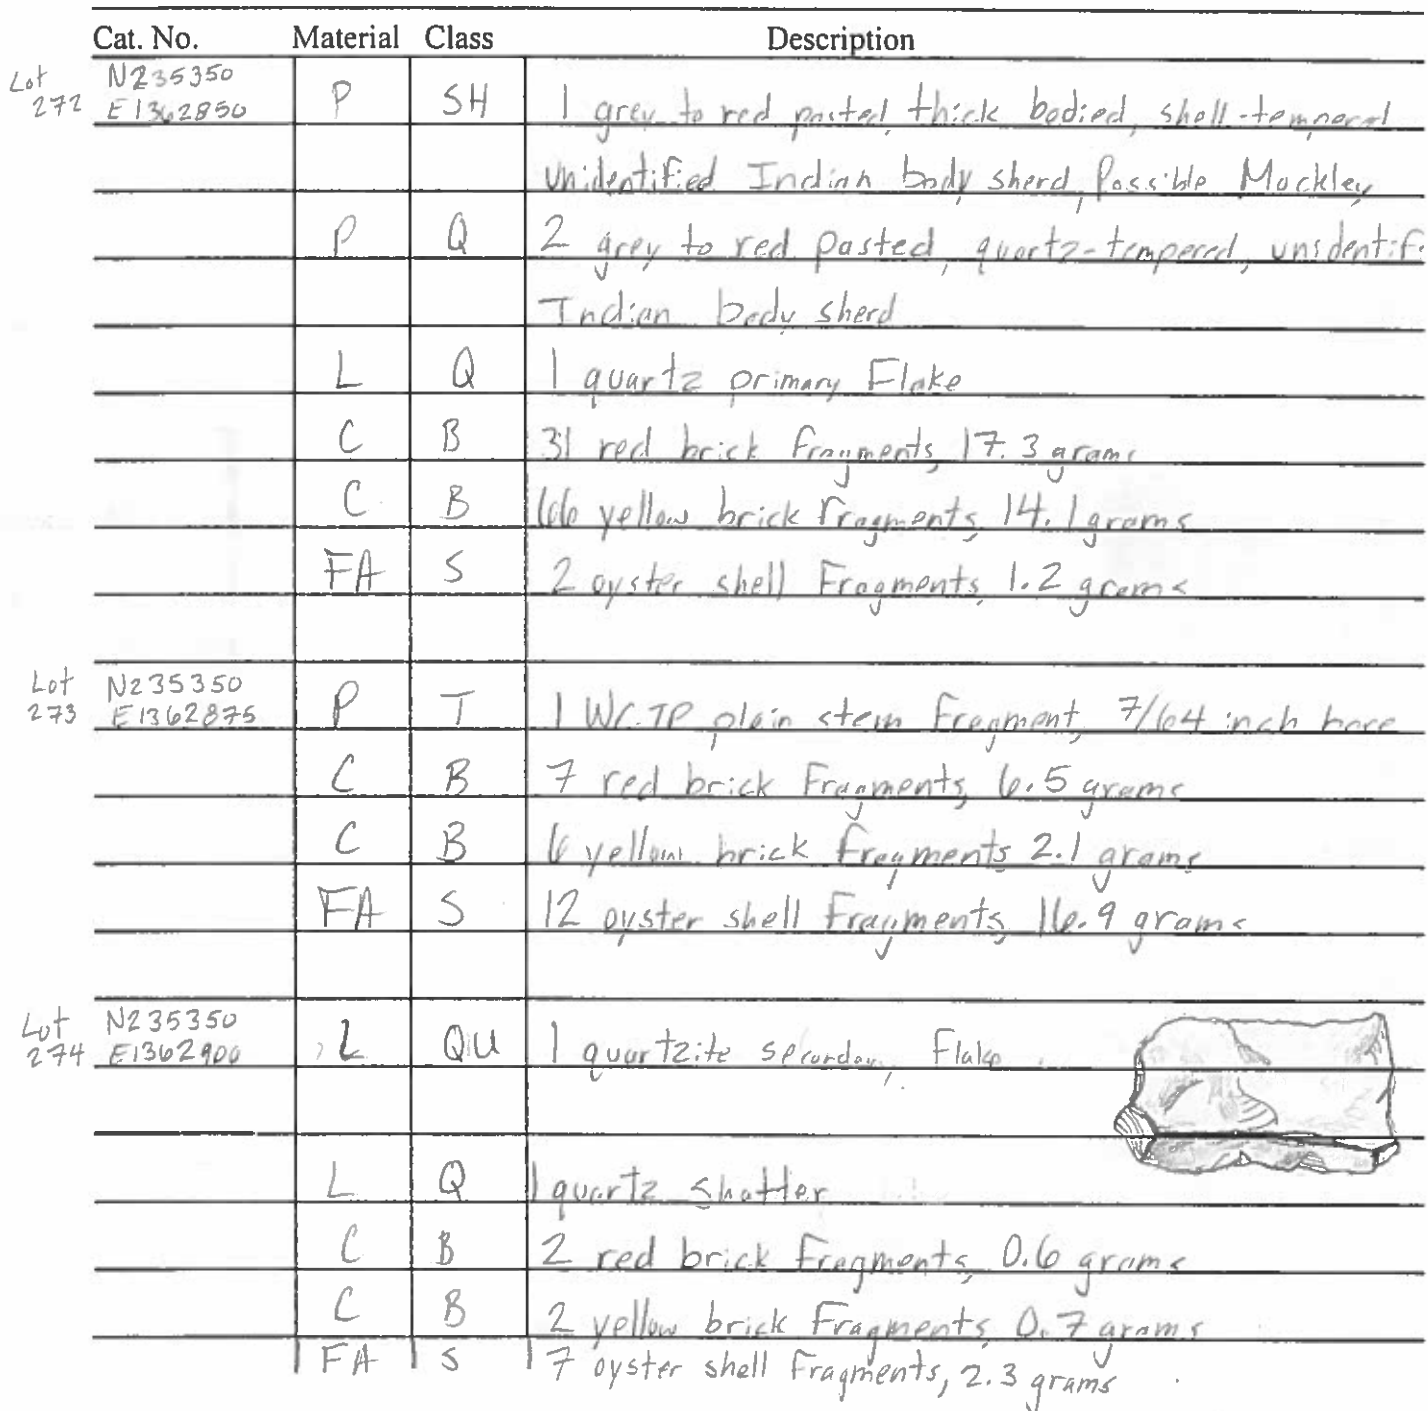 Cat. No. Material Class Description
Lot 272 N235350 E1362850 P SH 1 grey to red pasted, thick bodied, shell-tempered
unidentified Indian body sherd, Possible Mockley
P Q 2 grey to red pasted, quartz-tempered, unidentif
Indian body sherd
L Q 1 quartz primary Flake
C B 31 red brick fragments, 17.3 grams
C B 66 yellow brick fragments, 14.1 grams
FA S 2 oyster shell Fragments, 1.2 grams
Lot 273 N235350 E1362875 P T 1 WCTP plain stem Fragment, 7/64 inch bore
C B 7 red brick Fragments, 6.5 grams
C B 6 yellow brick fragments 2.1 grams
FA S 12 oyster shell Fragments, 16.9 grams
Lot 274 N235350 E1362900 L QU 1 quartzite secondary Flake
L Q 1 quartz shatter
C B 2 red brick Fragments, 0.6 grams
C B 2 yellow brick Fragments, 0.7 grams
FA S 7 oyster shell Fragments, 2.3 grams